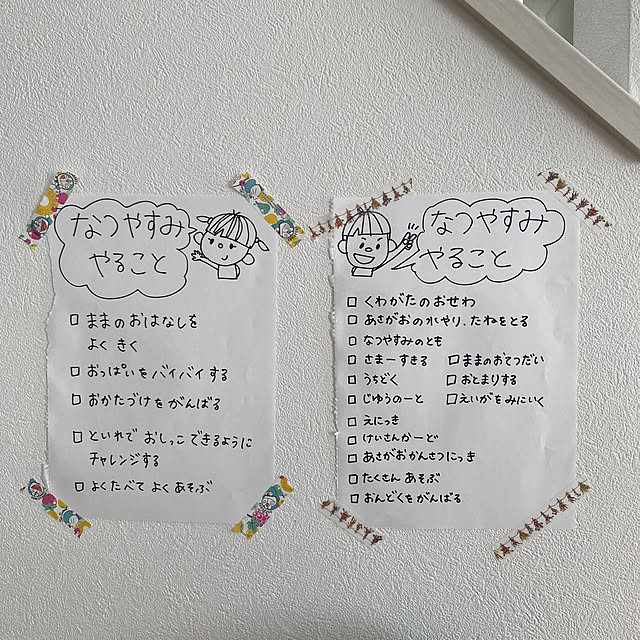 なつやすみ
やること
□ ままのおはなしを
よく きく
□ おっぱいをバイバイする
□ おかたづけをがんばる
□ といれで おしっこできるように
チャレンジする
□ よくたべて よくあそぶ
なつやすみ
やること
□ くわがたのおせわ
□ あさがおの水やり、たねをとる
□ なつやすみのとも
□ さまーすきる □ ままのおてつだい
□ うちどく □ おとまりする
□ じゆうのーと □ えいがをみにいく
□ えにっき
□ けいさんかーど
□ あさがおかんさつにっき
□ たくさん あそぶ
□ おんどくをがんばる